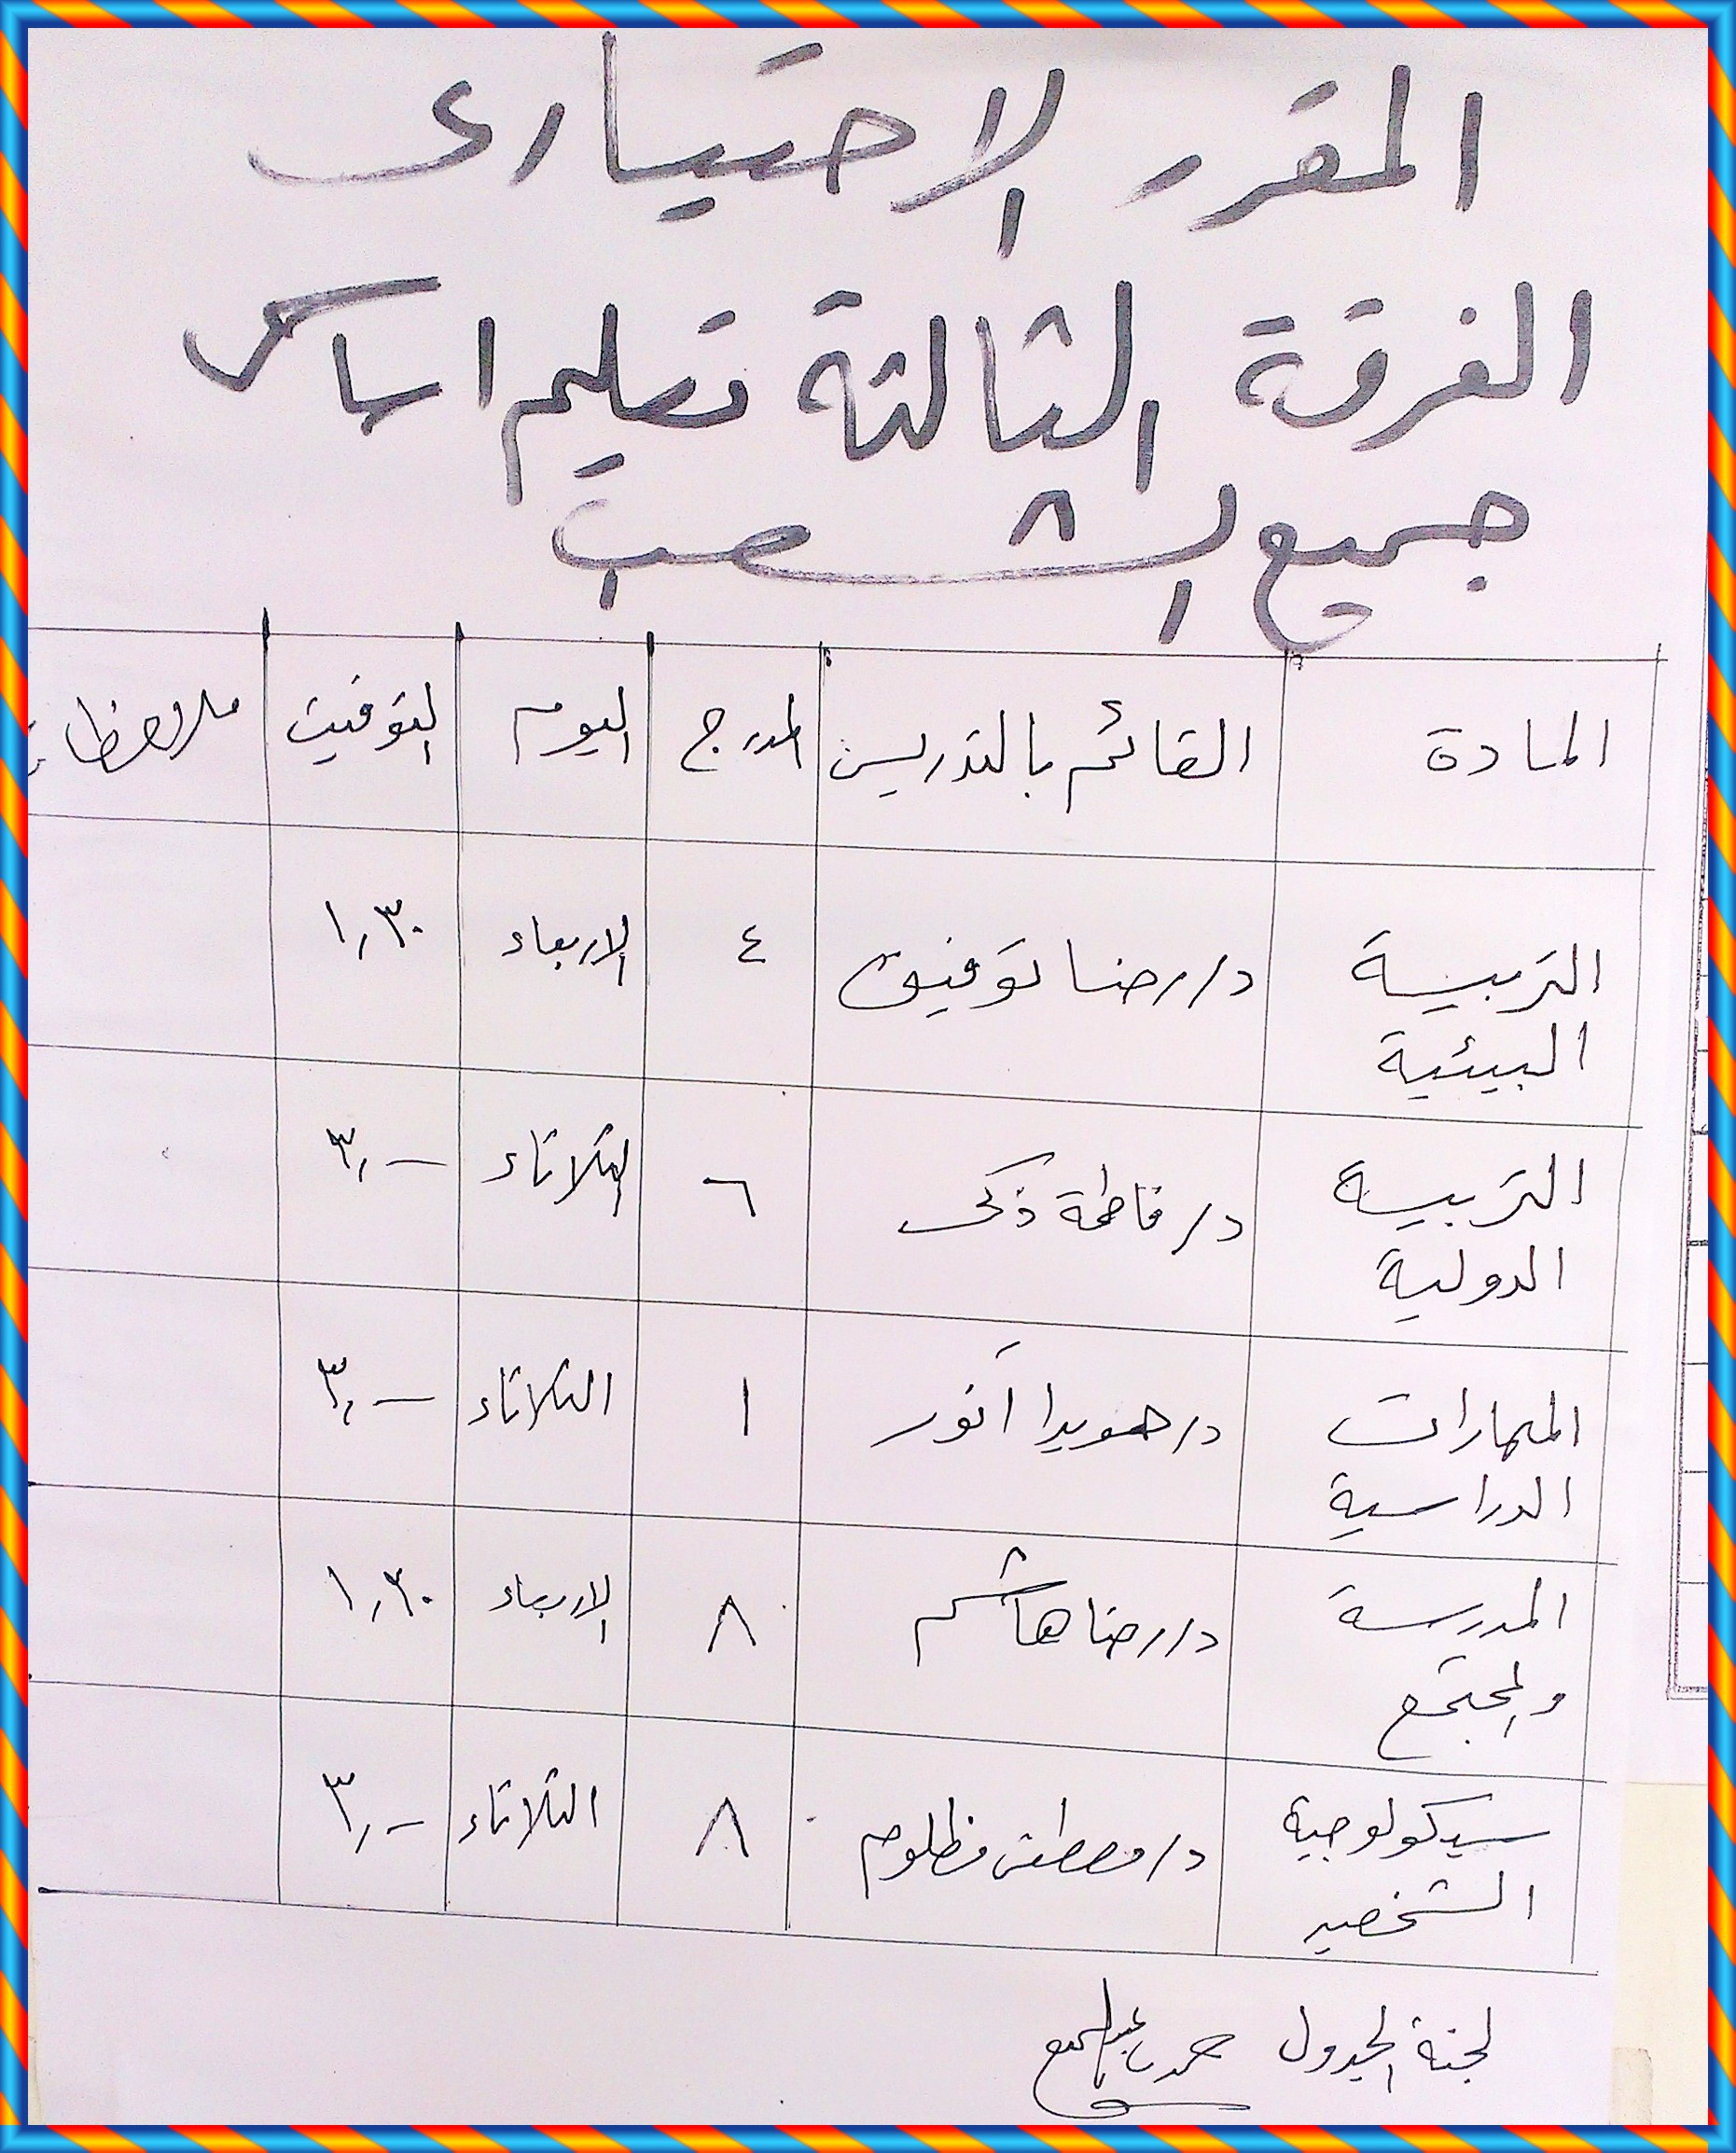 المقرر الاختيارى
الفرقة الثالثة تعليم اساسى
جميع الشعب
المادة القائم بالتدريس المدرج اليوم التوقيت ملاحظات
التربية د/ رضا توفيق ٤ الاربعاء ١,٣٠
البيئية
التربية د/ فاطمة زكى ٦ الثلاثاء ٣,–
الدولية
المهارات د/ هويدا أنور ١ الثلاثاء ٣,–
الدراسية
المدرسة د/ رضا هاشم ٨ الاربعاء ١,٣٠
والمجتمع
سيكولوجية د/ مصطفى مظلوم ٨ الثلاثاء ٣,–
الشخصية
لجنة الجدول